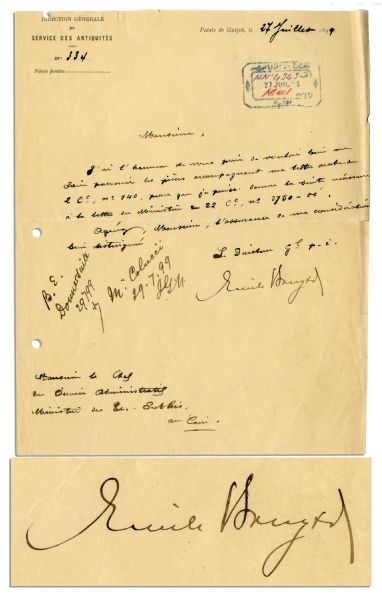 DIRECTION GÉNÉRALE
DU
SERVICE DES ANTIQUITÉS
N° 334
Pièces jointes
Palais de Guizeh, le 27 Juillet 1899
27 JUIL
Monsieur,
J'ai l'honneur de vous prier de vouloir bien me
faire parvenir les pièces accompagnant ma lettre
2 C°, n° 140, pour que je puisse donner la suite nécessaire
à la lettre du Ministère 22 C°, n° 2750
Agréez, Monsieur, l'assurance de ma considération
bien distinguée
Le Directeur Gal p. i.
Emile Brugsch
B. E.
29/7/99
Mr Colucci
29.7.99
Monsieur le Chef
du Service Administratif
Ministère des Tr. Publics,
au Caire.
Emile Brugsch